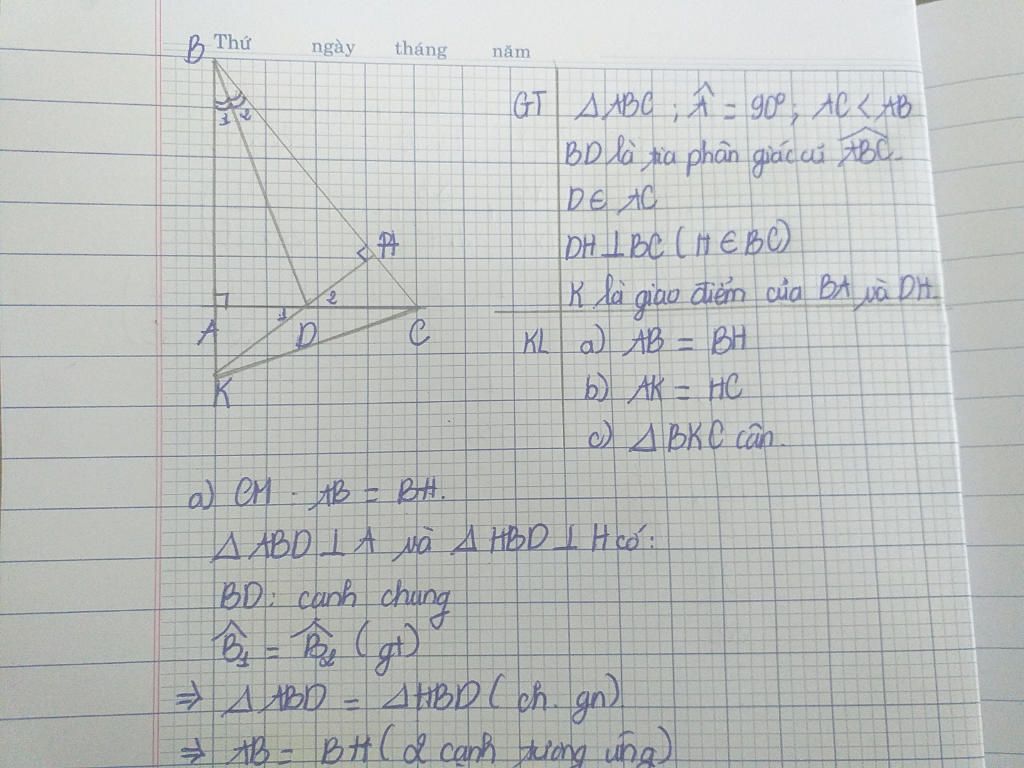 Thứ ngày tháng năm
B
1 2
H
A
1 2
D
C
K
GT ΔABC ; Â = 90°; AC < AB
BD là tia phân giác củ \widehat{ABC}.
D ∈ AC
DH ⊥ BC (H ∈ BC)
K là giao điểm của BA và DH.
KL a) AB = BH
b) AK = HC
c) ΔBKC cân.
a) CM : AB = BH.
Δ ABD ⊥ A và Δ HBD ⊥ H có:
BD: cạnh chung
\widehat{B}₁ = \widehat{B}₂ (gt)
⇒ Δ ABD = ΔHBD (ch. gn)
⇒ AB = BH (2 cạnh tương ứng)